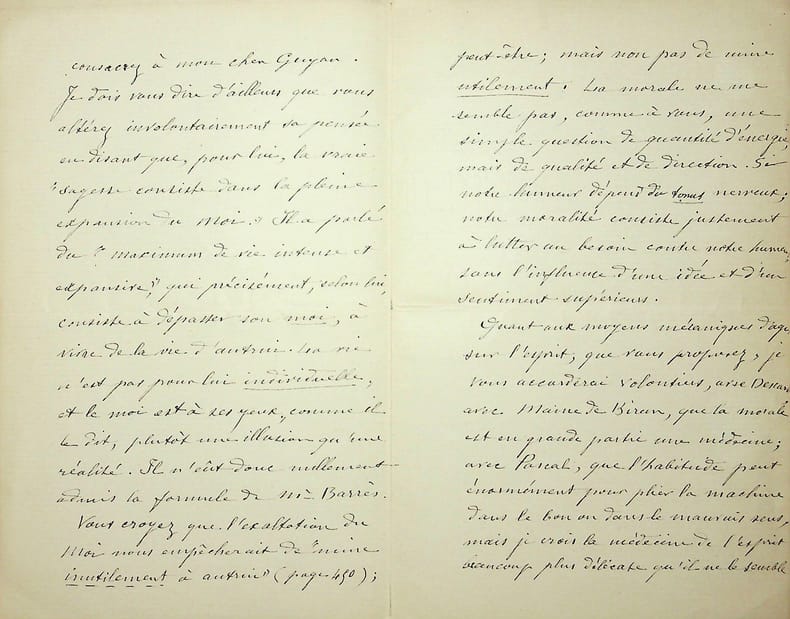 consacrez à mon cher Guyau.
Je dois vous dire d'ailleurs que vous
altérez involontairement sa pensée
en disant que, pour lui, la vraie
"sagesse consiste dans la pleine
expansion du moi." Il a parlé
du "maximum de vie intense et
expansive", qui précisément, selon lui,
consiste à dépasser son moi, à
vivre de la vie d'autrui. La vie
n'est pas pour lui individuelle,
et le moi est à ses yeux, comme il
le dit, plutôt une illusion qu'une
réalité. Il n'eût donc nullement
admis la formule de Mr Barrès.
Vous croyez que l'exaltation du
moi nous empêcherait de "nuire
inutilement à autrui" (page 490);
peut-être; mais non pas de nuire
utilement. La morale ne me
semble pas, comme à vous, une
simple question de quantité d'énergie,
mais de qualité et de direction. Si
notre humeur dépend du tonus nerveux,
notre moralité consiste justement
à lutter au besoin contre notre humeur,
sous l'influence d'une idée et d'un
sentiment supérieurs.
Quant aux moyens mécaniques d'agir
sur l'esprit, que vous proposez, je
vous accorderai volontiers, avec Descartes
avec Maine de Biran, que la morale
est en grande partie une médecine;
avec Pascal, que l'habitude peut
énormément pour plier la machine
dans le bon ou dans le mauvais sens,
mais je crois la médecine de l'esprit
beaucoup plus délicate qu'il ne le semble